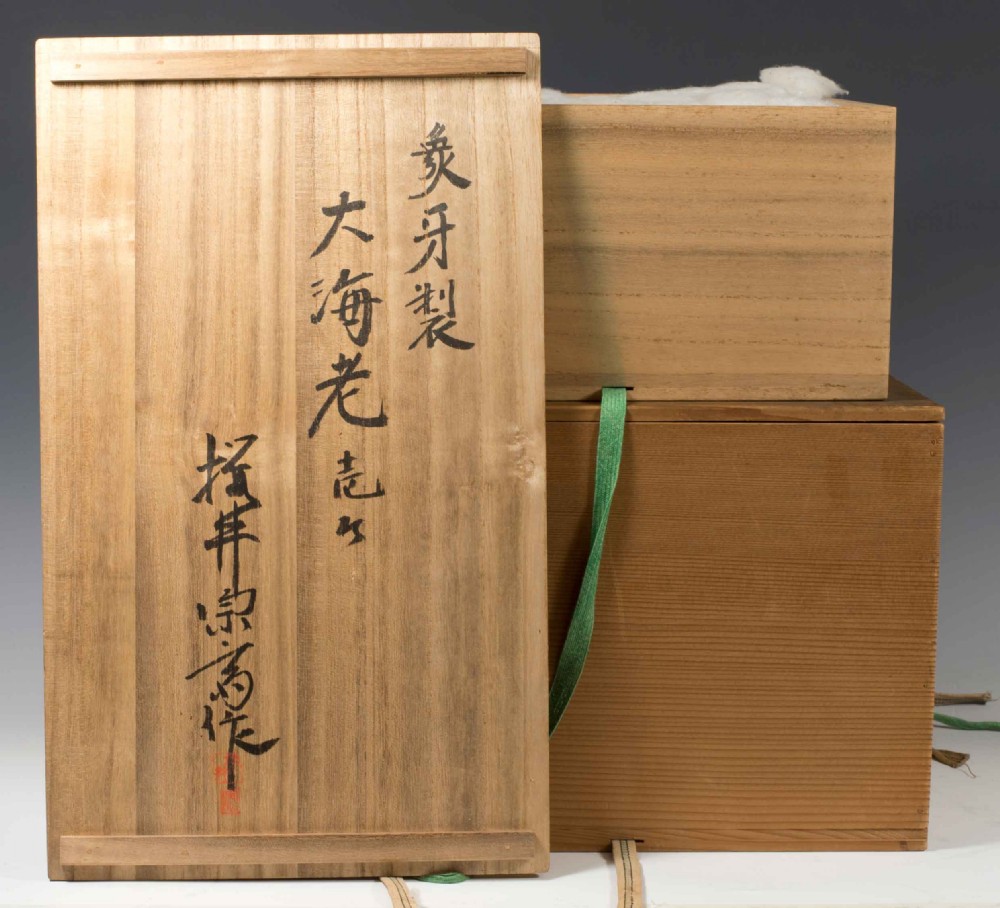 象牙製
大海老 壱
桜井宗高作